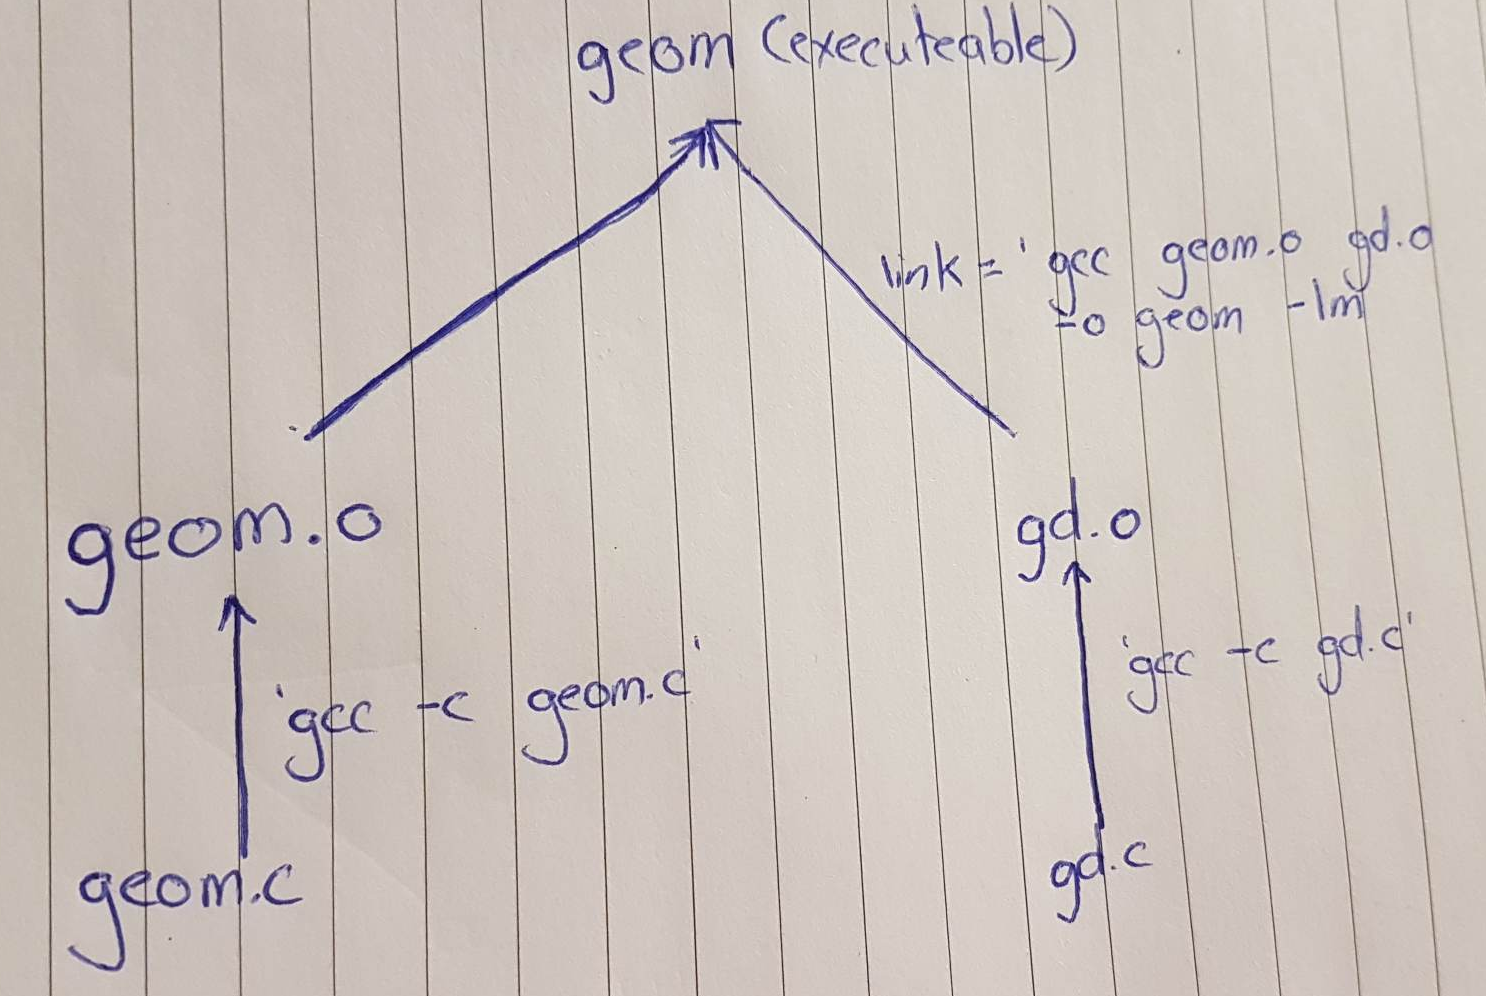 geom (executeable)
link = 'gcc geom.o gd.o
-o geom -lm
geom.o
gd.o
'gcc -c geom.c'
'gcc -c gd.c'
geom.c
gd.c